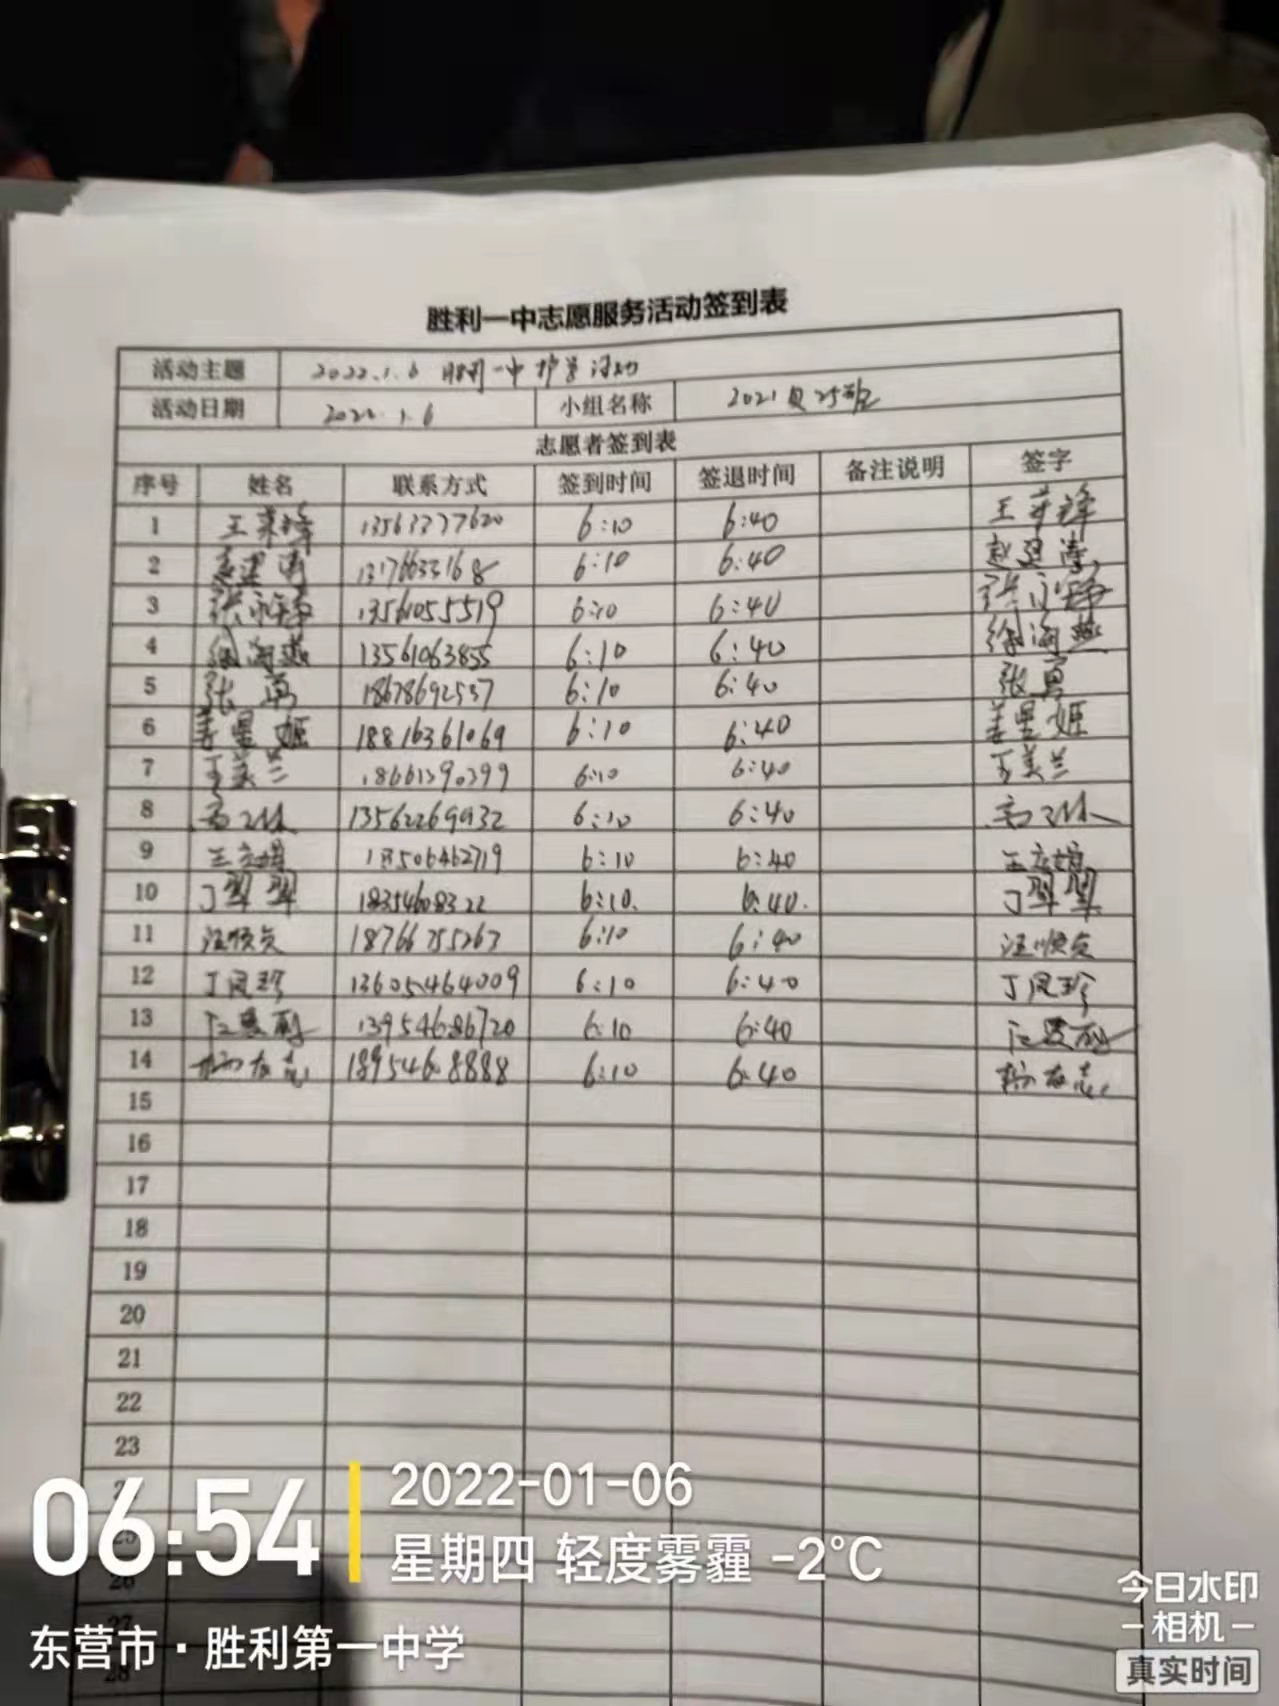 胜利一中志愿服务活动签到表
活动主题 2022.1.6 胜利一中护学活动
活动日期 2022.1.6 小组名称 2021级25班
志愿者签到表
序号 姓名 联系方式 签到时间 签退时间 备注说明 签字
1 6:10 6:40
2 13176633168 6:10 6:40
3 13561055519 6:10 6:40
4 徐海燕 13561063855 6:10 6:40 徐海燕
5 张勇 18678692557 6:10 6:40 张勇
6 姜星姬 18816361069 6:10 6:40 姜星姬
7 王美兰 18661390399 6:10 6:40 王美兰
8 13562269932 6:10 6:40
9 18506462719 6:10 6:40
10 丁翠翠 18354608322 6:10. 6:40. 丁翠翠
11 18766755263 6:10 6:40
12 丁凤珍 13605464009 6:10 6:40 丁凤珍
13 13954686720 6:10 6:40
14 杨友志 18954688888 6:10 6:40 杨友志
15
16
17
18
19
20
21
22
23
26
27
28
06:54
2022-01-06
星期四 轻度雾霾 -2°C
东营市·胜利第一中学
今日水印
-相机-
真实时间